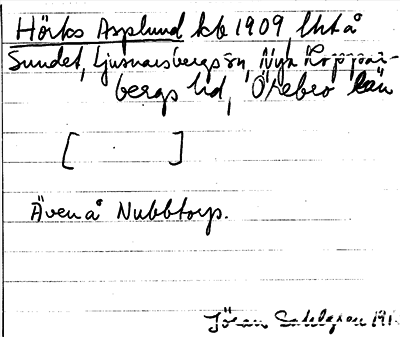 Hörks Asplund kb 1909, lht å
Sundet, Ljusnarsbergs sn, Nya Koppar-
bergs hd, Örebro län
[ ]
Även å Nubbtorp.
Jöran Sahlgren 191